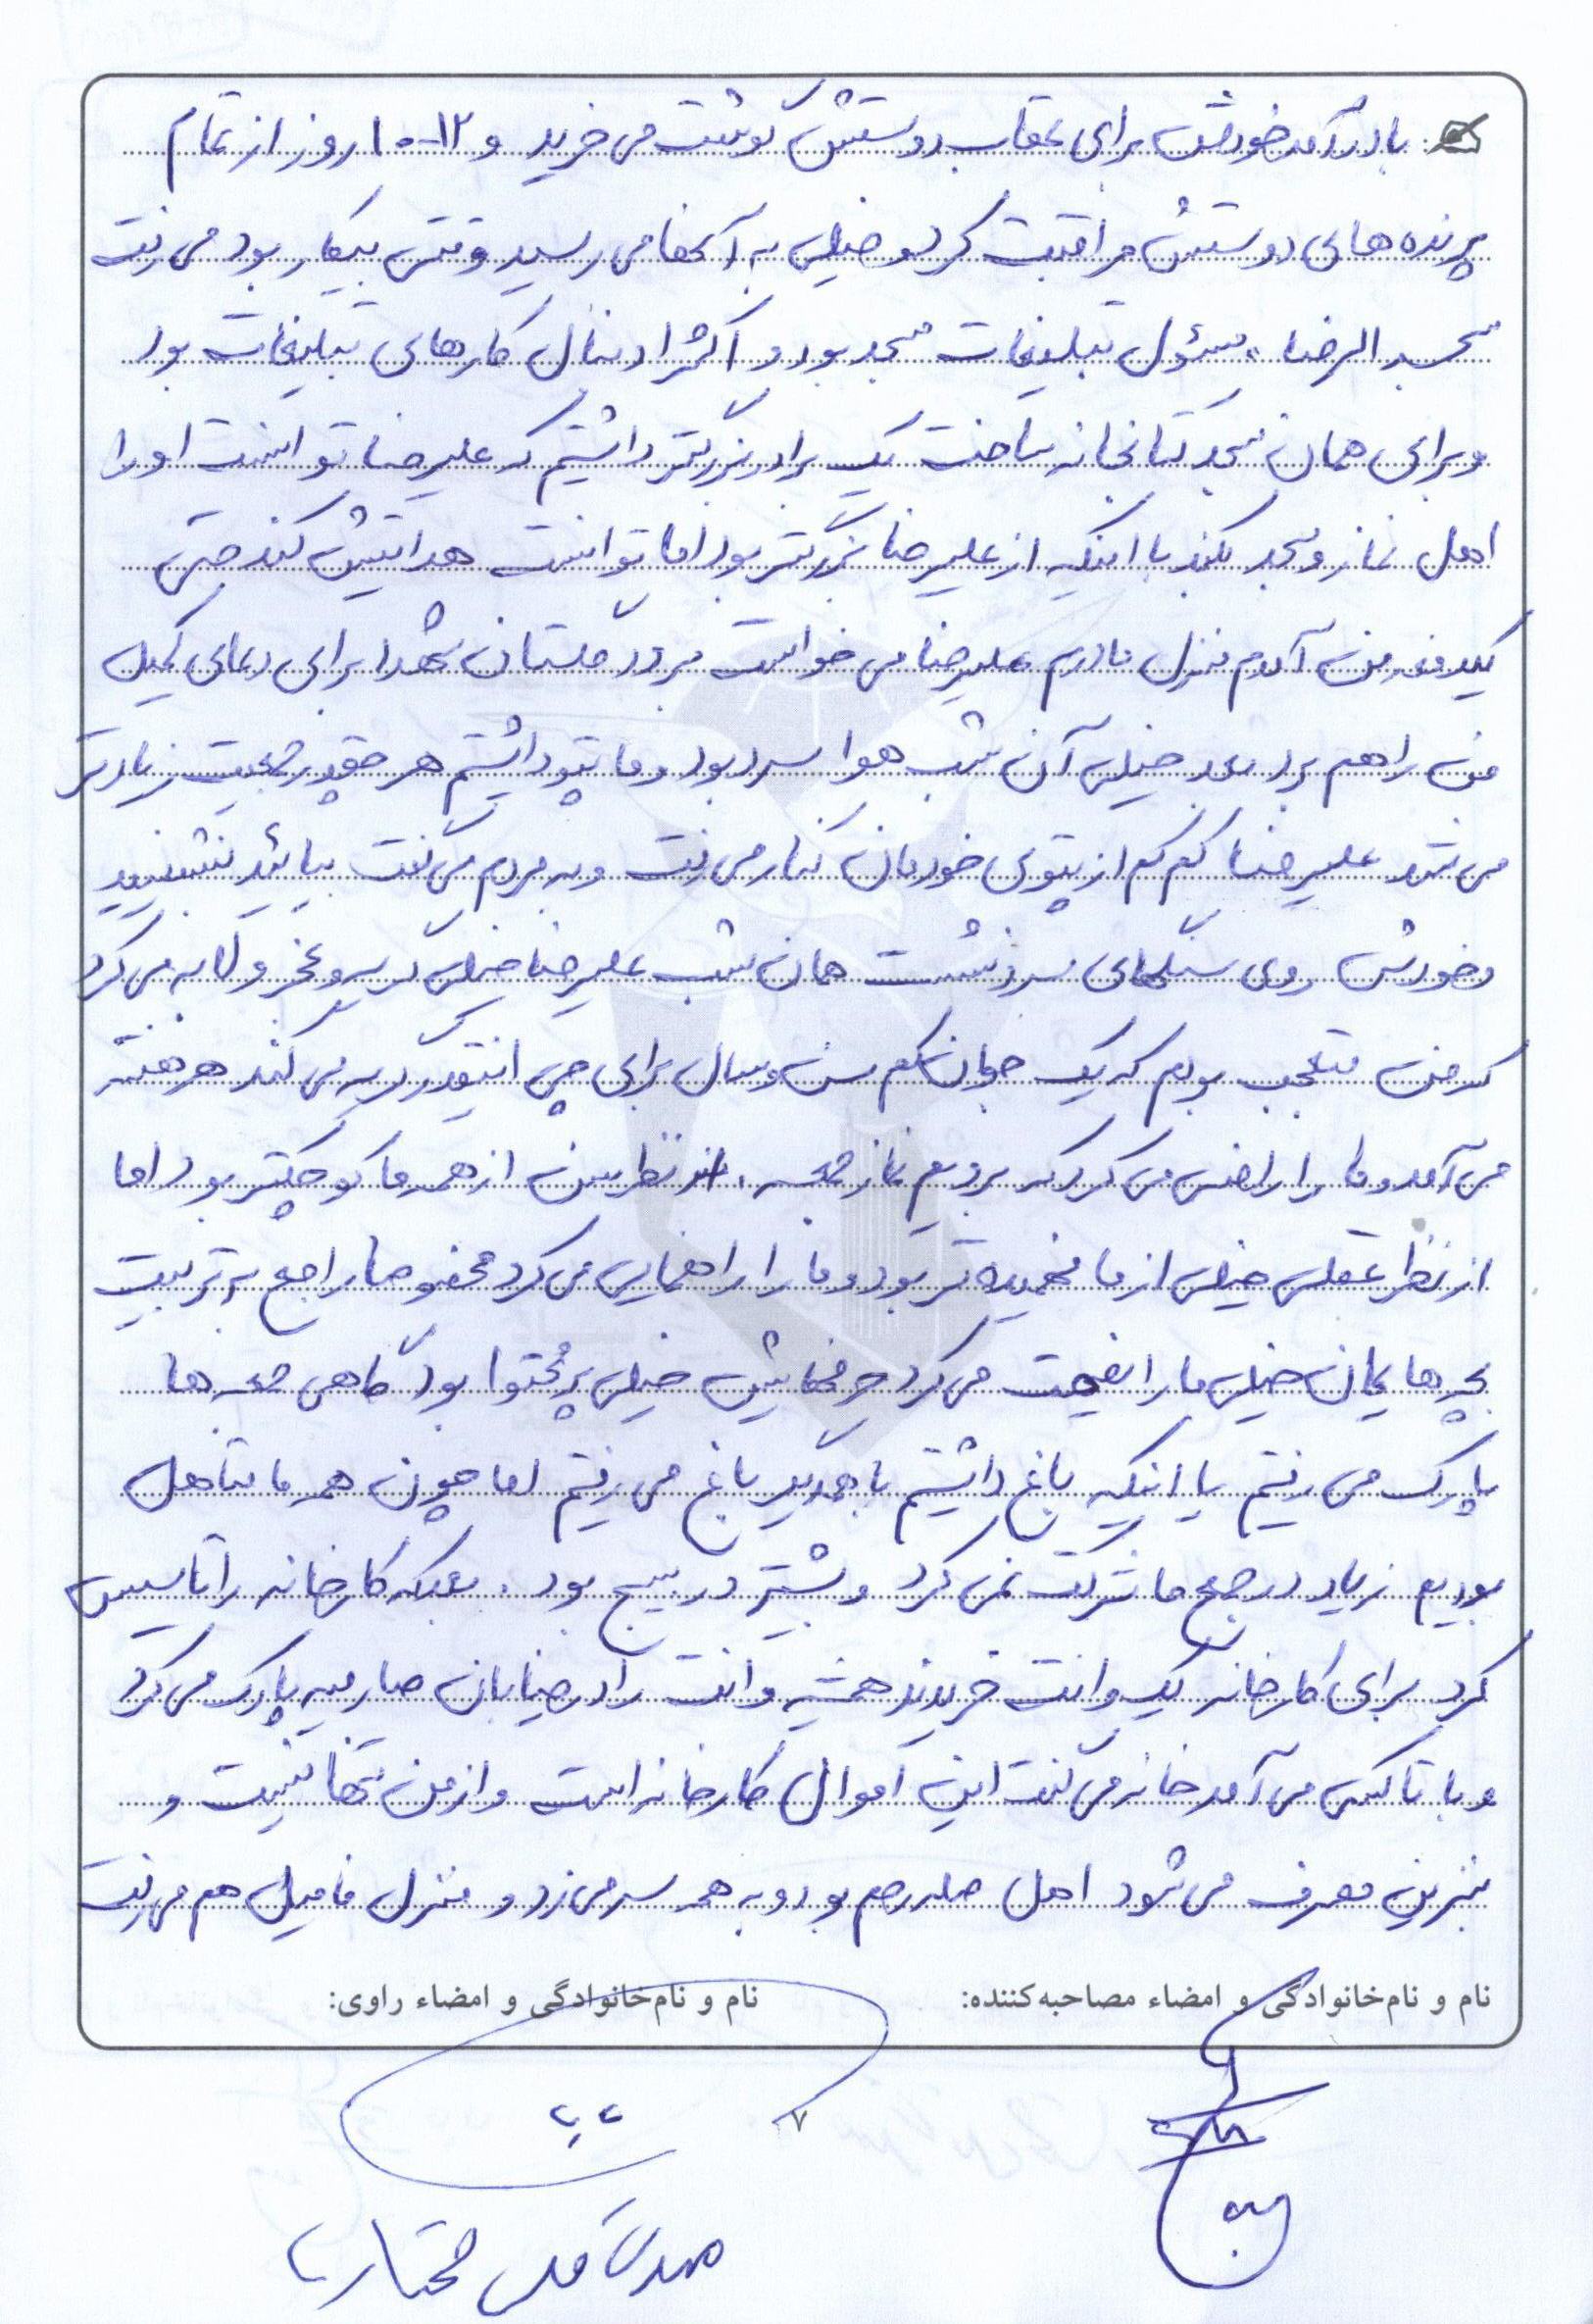 با درآمد خودش برای عقاب دوستش گوشت می خرید و ۱۲-۱۰ روز از تمام
پرنده های دوستش مراقبت کرد و خیلی به آنها می رسید وقتی بیکار بود می رفت
مسجد الرضا، مسئول تبلیغات مسجد بود و اکثرا دنبال کارهای تبلیغات بود
و برای همان مسجد کتابخانه ساخت یک برادر بزرگتر داشتیم که علیرضا توانست او را
اهل نماز و مسجد بکند با اینکه از علیرضا بزرگتر بود اما توانست هدایتش کند حتی
یکدفعه من آمدم منزل مادرم علیرضا می خواست برود گلستان شهدا برای دعای کمیل
من را هم برد بعد خیلی آن شب هوا سرد بود و ما پتو داشتیم هر چقدر جمعیت زیادتر
می شد علیرضا کم کم از پتوی خودمان کنار می رفت و به مردم می گفت بیائید بنشینید
و خودش روی سنگهای سرد نشست همان شب علیرضا خیلی گریه و عجز و لابه می کرد
که من متعجب بودم که یک جوان کم سن و سال برای چی اینقدر گریه می کند هر هفته
می آمد و ما را راضی می کرد که برویم نماز جمعه. از نظر سن از همه ما کوچکتر بود اما
از نظر عقلی خیلی از ما فهمیده تر بود و ما را راهنمایی می کرد مخصوصا راجع به تربیت
بچه هایمان خیلی ما را نصیحت می کرد حرفهایش خیلی پرمحتوا بود گاهی جمعه ها
پارک می رفتیم یا اینکه باغ داشتیم با همدیگر باغ می رفتیم اما چون همه ما متاهل
بودیم زیاد در جمع ما شرکت نمی کرد و بیشتر در بسیج بود. بعد که کارخانه را تاسیس
کرد برای کارخانه یک وانت خریدند همیشه وانت را در خیابان صارمیه پارک می کرد
و با تاکسی می آمد خانه می گفت این اموال کارخانه است و از من تنها نیست و
بنزین مصرف می شود اهل صله رحم بود و به همه سر می زد و منزل فامیل هم می رفت
نام و نام‌خانوادگی و امضاء مصاحبه‌کننده: نام و نام‌خانوادگی و امضاء راوی:
۷